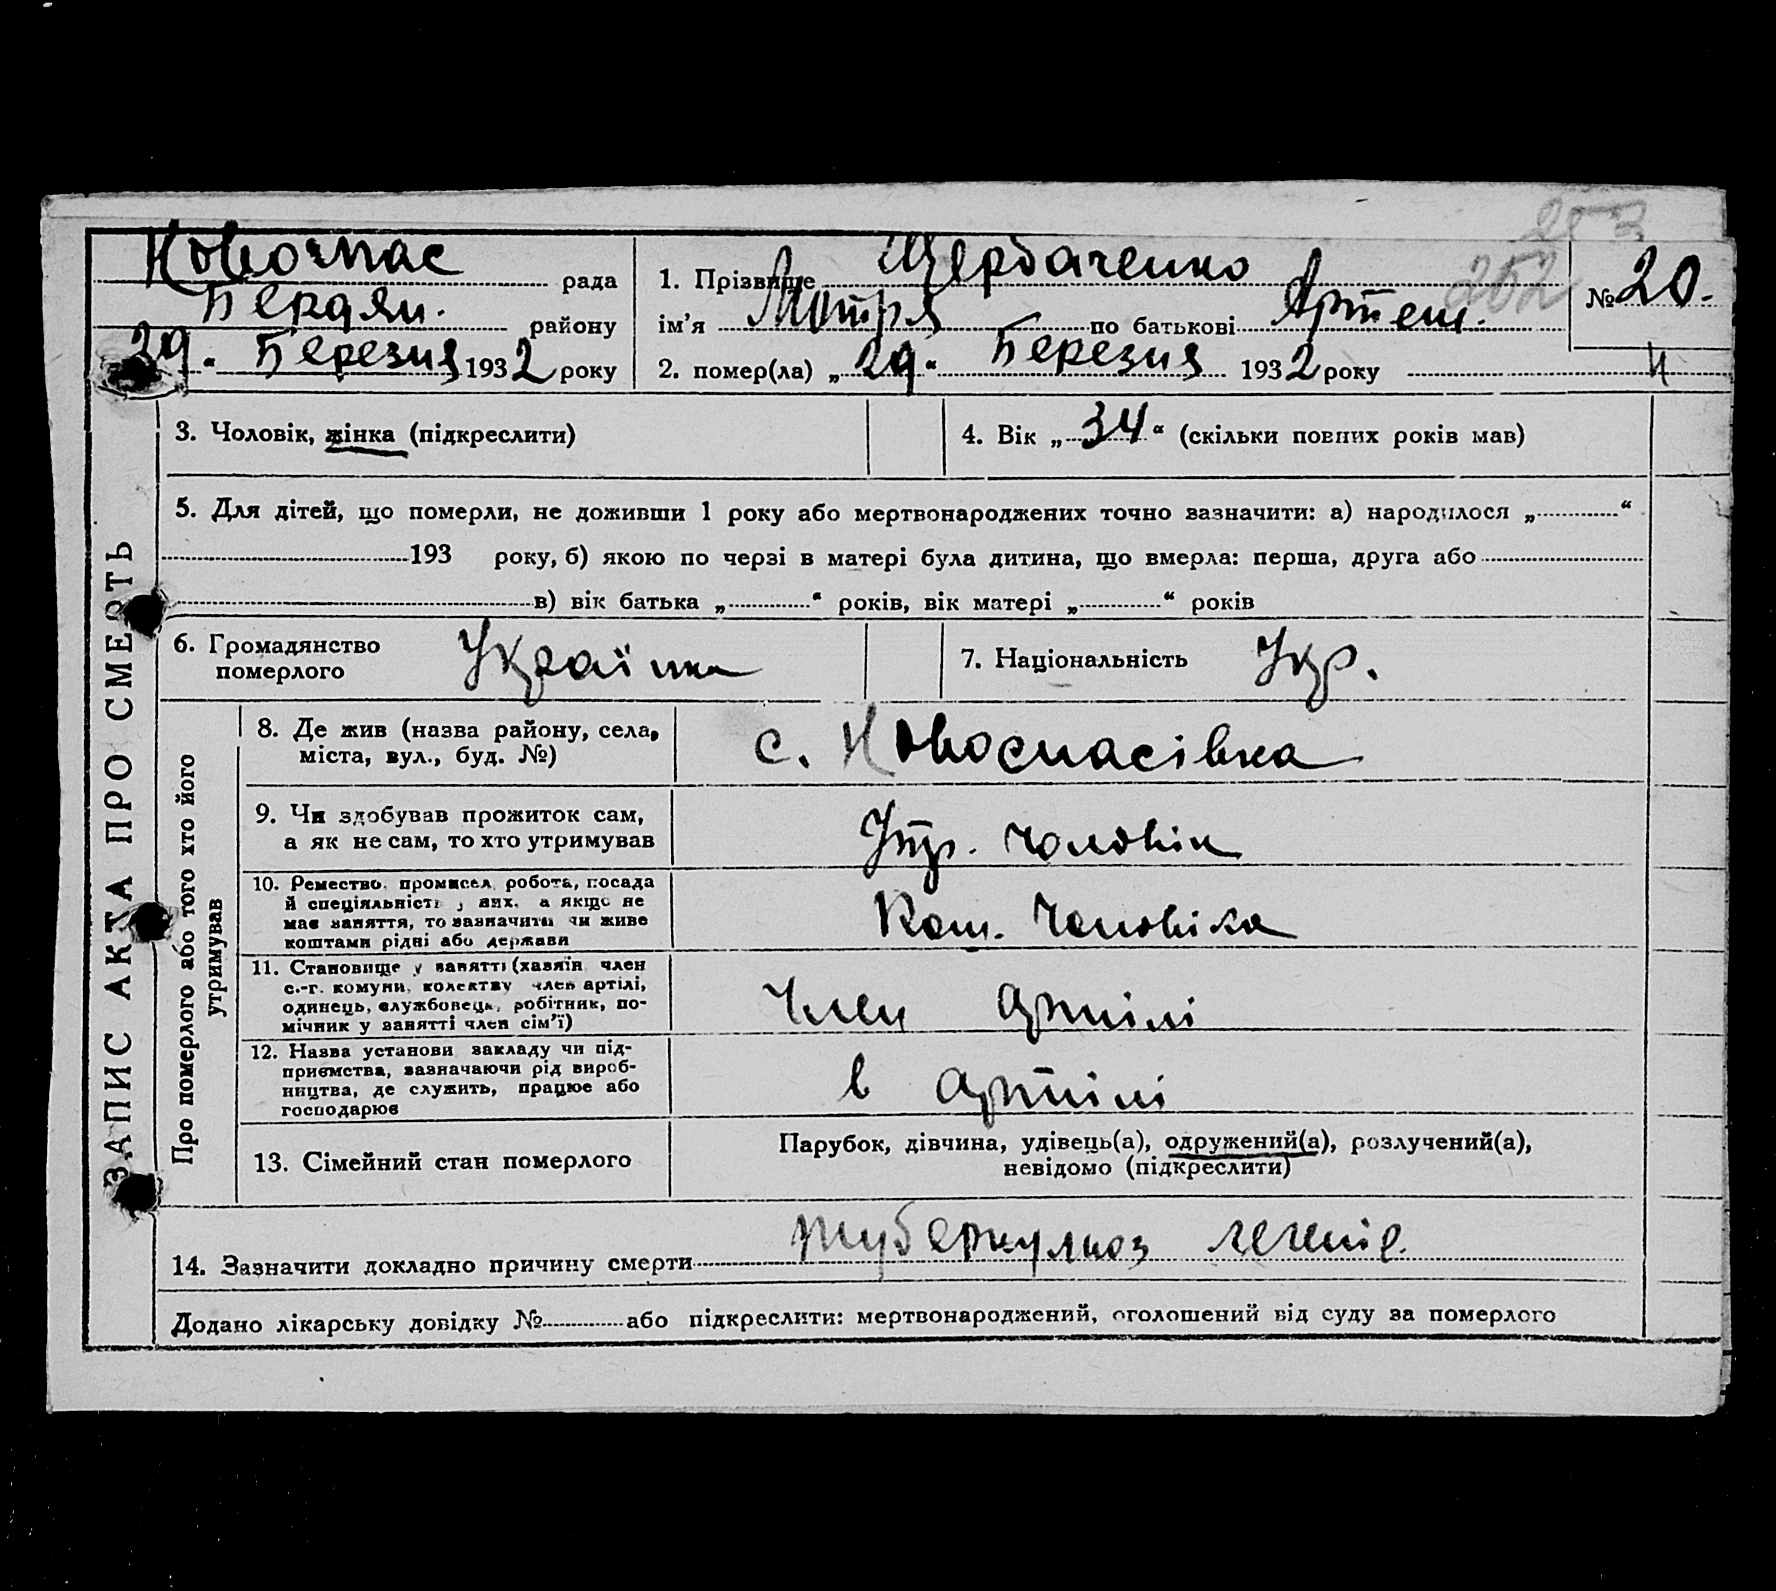 253
Новоспас рада
Бердян. району
29. Березня 1932 року
1. Прізвище Щербаченко
252
№ 20.
ім’я Мотря по батькові Артем.
2. помер(ла) „29“ Березня 1932 року
3. Чоловік, жінка (підкреслити)
4. Вік „34“ (скільки повних років мав)
5. Для дітей, що померли, не доживши 1 року або мертвонароджених точно зазначити: а) народилося „ “
193 року, б) якою по черзі в матері була дитина, що вмерла: перша, друга або
в) вік батька „ “ років, вік матері „ “ років
6. Громадянство
померлого
Українка
7. Національність Укр.
ЗАПИС АКТА ПРО СМЕРТЬ
Про померлого або того хто його
утримував
8. Де жив (назва району, села,
міста, вул., буд. №)
с. Новоспасівка
9. Чи здобував прожиток сам,
а як не сам, то хто утримував
Утр. чоловік
10. Ремество, промисел, робота, посада
й спеціяльність у них, а якщо не
має заняття, то зазначити чи живе
коштами рідні або держави
Кош. Чоловіка
11. Становище у занятті (хазяїн, член
с.-г. комуни, колективу член артілі,
одинець, службовець, робітник, по-
мічник у занятті член сім’ї)
Член артілі
12. Назва установи закладу чи під-
приємства, зазначаючи рід вироб-
ництва, де служить, працює або
господарює
в артілі
13. Сімейний стан померлого
Парубок, дівчина, удівець(а), одружений(а), розлучений(а),
невідомо (підкреслити)
14. Зазначити докладно причину смерти туберкульоз легенів.
Додано лікарську довідку № або підкреслити: мертвонароджений, оголошений від суду за померлого